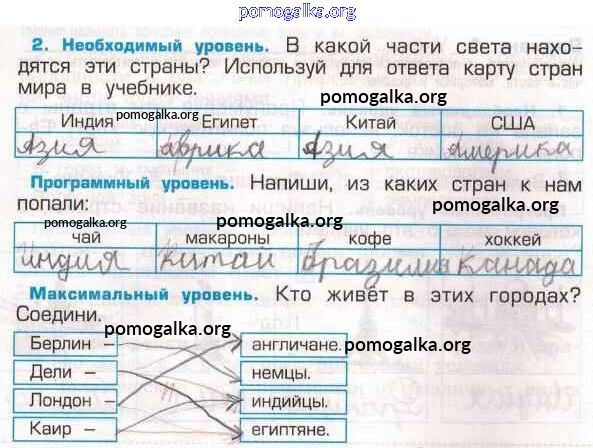 pomogalka.org
2. Необходимый уровень. В какой части света нахо-
дятся эти страны? Используй для ответа карту стран
мира в учебнике.
pomogalka.org
Индия pomogalka.org Египет Китай США
Азия африка Азия америка
Программный уровень. Напиши, из каких стран к нам
попали: pomogalka.org
pomogalka.org pomogalka.org
чай макароны кофе хоккей
Индия Китай Бразилия Канада
Максимальный уровень. Кто живёт в этих городах?
Соедини.
pomogalka.org
Берлин – англичане. pomogalka.org
Дели – немцы.
Лондон – индийцы.
Каир – египтяне.
pomogalka.org